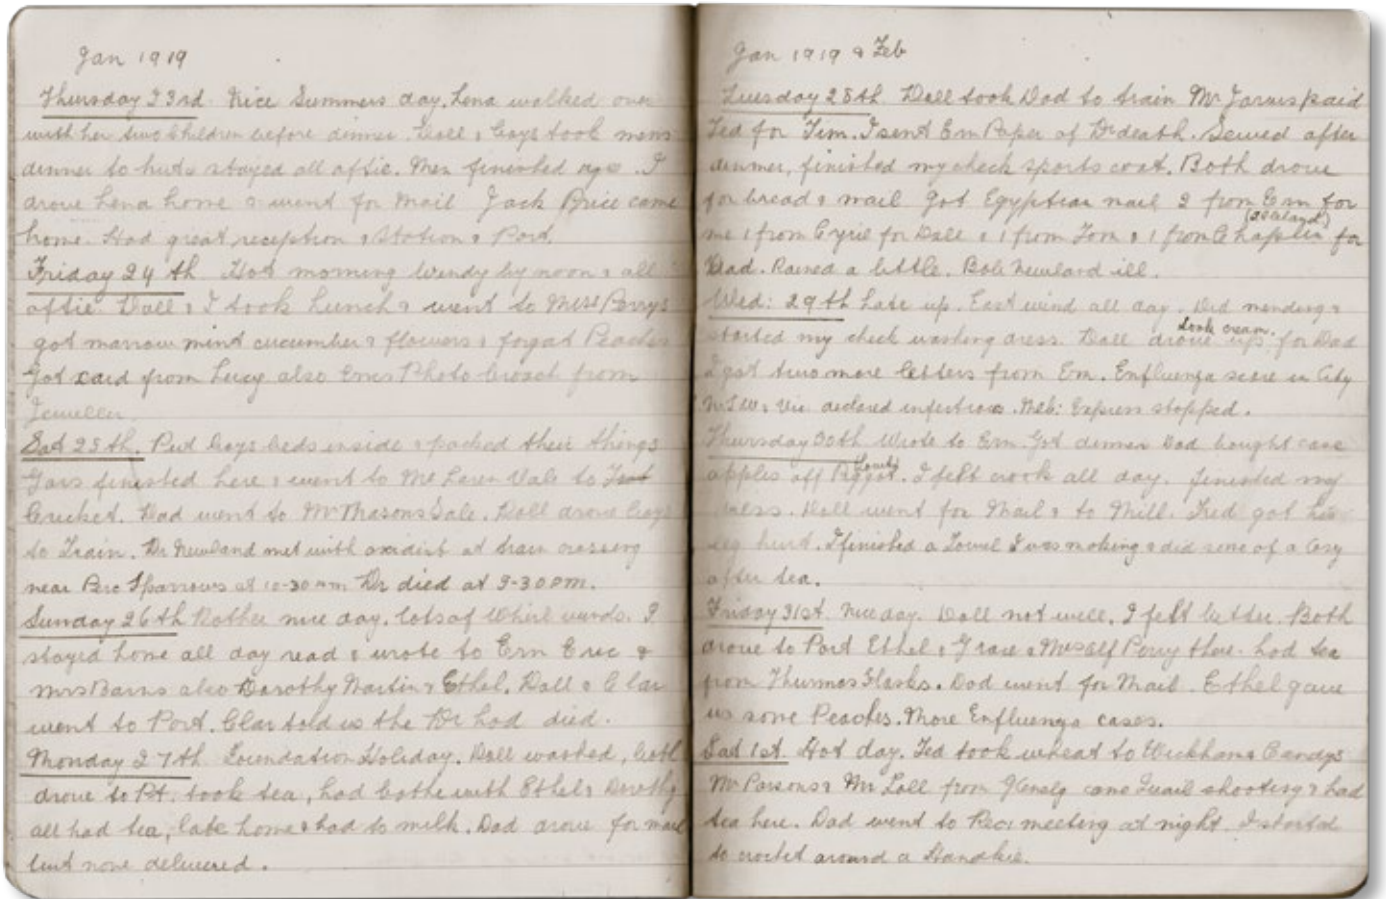 Jan 1919
Thursday 23rd. Nice Summers day. Lena walked over
with her two Children before dinner. Doll & boys took mens
dinner to huts stayed all aftie. Men finished . I
drove Lena home & went for Mail Jack Price came
home. Had great reception , Station & Port.
Friday 24th. Hot morning Windy by noon & all
aftie. Doll & I took Lunch & went to Miss Perrys
got marrow mint cucumber & flowers & forgot Peaches
Got card from Lucy also Erns Photo broach from
Jeweller.
Sat 25th. Put boys beds inside & packed their things
finished here & went to Mc Laren Vale to
Cricket. Dad went to Mr Masons Sale. Doll drove boys
to Train. Dr Newland met with axident at train crossing
near Bro Sparrows at 10-30 am Dr died at 3-30 pm.
Sunday 26th Rather nice day. lots of Whirl winds. I
stayed home all day read & wrote to Ern Eric &
Mrs Barns also Dorothy Martin & Ethel. Doll & Clar
went to Port. Clar told us the Dr had died.
Monday 27th Foundation Holiday. Doll washed, both
drove to Pt. took tea, had bathe with Ethel & Dorothy
all had tea, late home & had to milk. Dad drove for mail
but none delivered.
Jan 1919 & Feb
Tuesday 28th. Doll took Dad to train Mr Jarvis paid
Ted for Tim. I sent Ern Paper of Dr death. Sewed after
dinner, finished my check sports coat. Both drove
for bread & mail Got Egyptian mail 2 from Ern for
me 1 from Cyril for Doll & 1 from Tom & 1 from Chaplin for
Dad. Rained a little. Bob Newland ill.
Wed: 29th Late up. East wind all day. Did mending &
started my check washing dress. Doll drove up for Dad
took cream.
I got two more letters from Ern. Enfluenga scare in City
N.S.W. & Vic. declared infectious. Melb: Express stopped.
Thursday 30th Wrote to Ern Got dinner Dad bought case
apples off Piggot. I felt crook all day. finished my
dress. Doll went for Mail & to Mill. Fred got his
leg hurt. I finished a Towel I was making & did some of a Cosy
after tea.
Friday 31st. Nice day. Doll not well, I felt better. Both
drove to Port Ethel & Grace & Perry there. had tea
from Thurmos Flasks. Dad went for Mail. Ethel gave
us some Peaches. More Enfluenga cases.
Sat 1st. Hot day. Ted took wheat to Wickhams Bendys
Mr Parsons & Mr Loll from Glenelg came Quail shooting & had
tea here. Dad went to Rec: meeting at night. I started
to crochet around a Handkie.